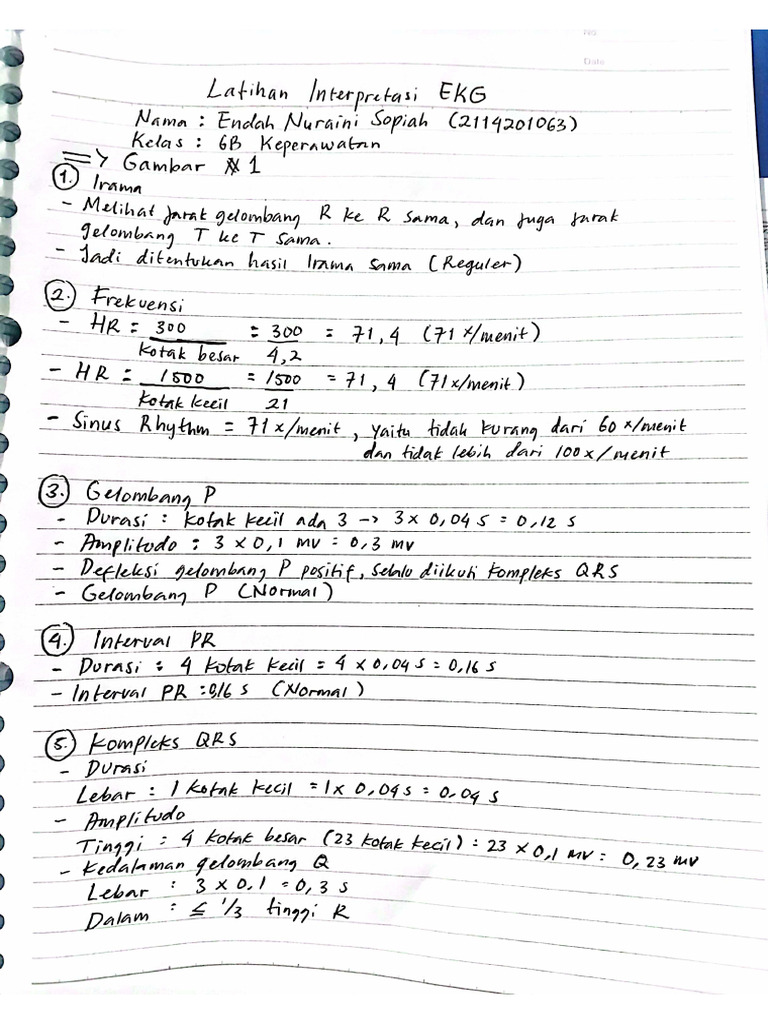 No
Date
Latihan Interpretasi EKG
Nama : Endah Nuraini Sopiah (2114201063)
Kelas : 6B Keperawatan
=> Gambar 1
1. Irama
- Melihat jarak gelombang R ke R sama, dan juga jarak
gelombang T ke T sama.
- Jadi ditentukan hasil Irama sama (Reguler)
2. Frekuensi
- HR = 300 = 300 = 71,4 (71 x/menit)
Kotak besar 4,2
- HR = 1500 = 1500 = 71,4 (71x/menit)
Kotak kecil 21
- Sinus Rhythm = 71x/menit, yaitu tidak kurang dari 60 x/menit
dan tidak lebih dari 100x/menit
3. Gelombang P
- Durasi : Kotak kecil ada 3 -> 3 x 0,04 s = 0,12 s
- Amplitudo : 3 x 0,1 mv = 0,3 mv
- Defleksi gelombang P positif, selalu diikuti kompleks QRS
- Gelombang P (Normal)
4. Interval PR
- Durasi : 4 kotak kecil = 4 x 0,04 s = 0,16 s
- Interval PR : 0,16 s (Normal)
5. Kompleks QRS
- Durasi
Lebar : 1 kotak kecil = 1 x 0,04s = 0,04 s
- Amplitudo
Tinggi : 4 kotak besar (23 kotak kecil) = 23 x 0,1 mv = 0,23 mv
- Kedalaman gelombang Q
Lebar : 3 x 0,1 = 0,3 s
Dalam : ≤ 1/3 tinggi R